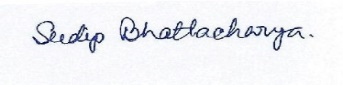 Sudip Bhattacharya.